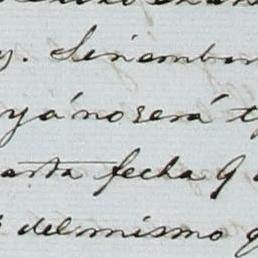 Sinembar
yá no será t
asta fecha q
del mismo q